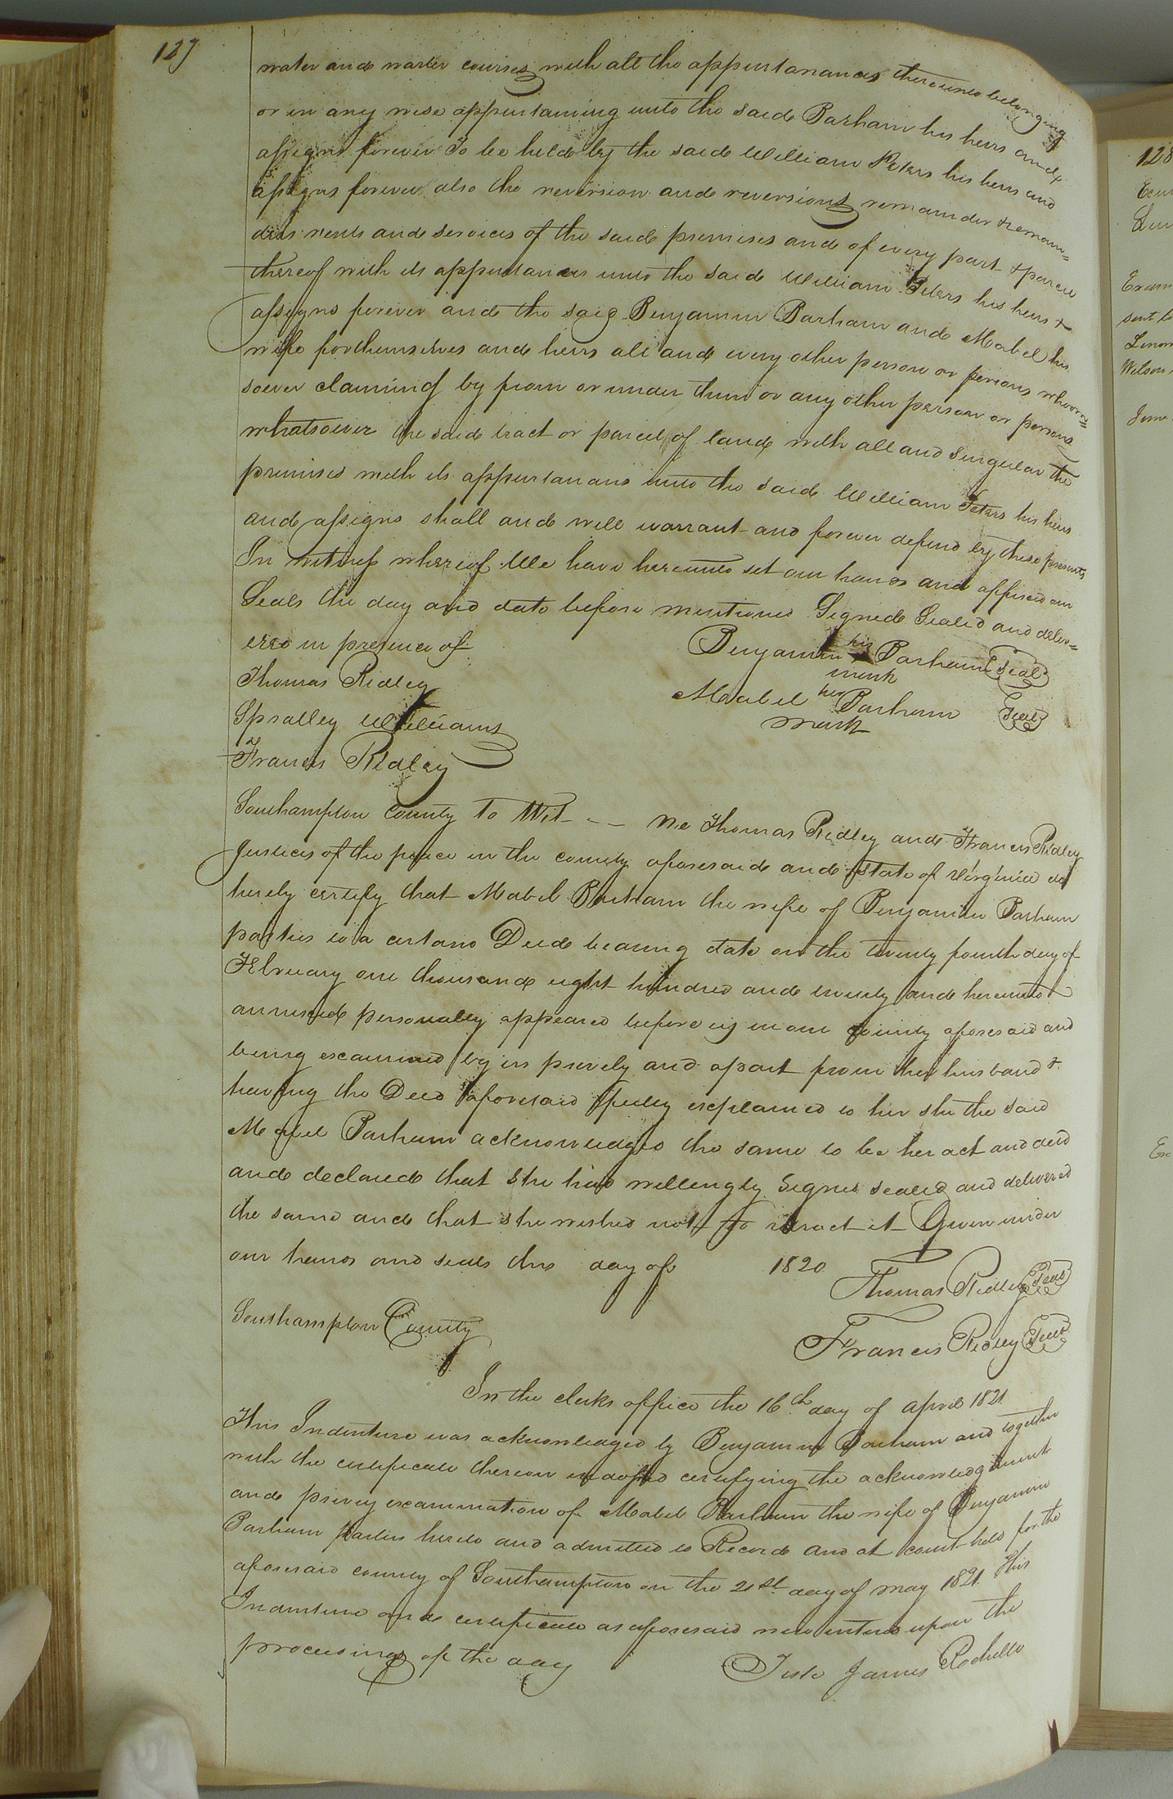 127
water and water courses with all the appurtanances thereunto belonging
or in any wise appurtaining unto the said Parham his heirs and
assigns forever To be held by the said William Peters his heirs and
assigns forever also the reversion and reversions remainder & remain=
ders rents and services of the said premises and of every part & parcel
thereof with its appurtances unto the said William Peters his heirs &
assigns forever and the said Benjamin Parham and Mabel his
wife for themselves and heirs all and every other person or persons whom=
soever claiming by from or under them or any other person or persons
whatsoever the said tract or parcel of land with all and singular the
premises with its appurtanans unto the said William Peters his heirs
and assigns shall and will warrant and forever defend by these presents
In witness whereof We have hereunto set our hands and affixed our
Seals the day and date before mentioned Signed Sealed and deliv=
ered in presence of
Benjamin his Parham Seal
mark
Thomas Ridley
Mabel her Parham Seal
mark
Spratley Williams
Francis Ridley
Southampton County To Wit - - We Thomas Ridley and Francis Ridley
Justices of the peace in the county aforesaid and state of Virginia do
hereby certify that Mabel Parham the wife of Benjamin Parham
parties to a certain Deed bearing date on the twenty fourth day of
February one thousand eight hundred and twenty and hereunto
annexed personally appeared before us in our county aforesaid and
being examined by us privily and apart from her husband &
having the Deed aforesaid fully explained to her she the said
Mabel Parham acknowledged the same to be her act and deed
and declared that she had willingly Signed sealed and delivered
the same and that she wished not to retract it Given under
our hands and seals this day of 1820
Thomas Ridley Seal
Southampton County
Francis Ridley Seal
In the clerks office the 16th day of April 1821
This Indenture was acknowledged by Benjamin Parham and together
with the certificate thereon indorsed certifying the acknowledgement
and privy examination of Mabel Parham the wife of Benjamin
Parham parties hereto and admitted to Record and at court held for the
aforesaid county of Southampton on the 21st day of may 1821. This
Indenture and certificate as aforesaid were entered upon the
proceedings of the day
Teste James Rochelle
128
Wilson